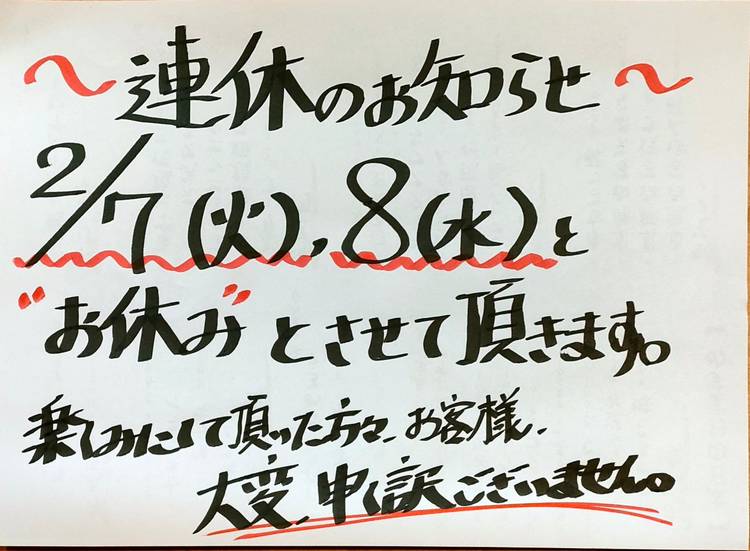 ～連休のお知らせ～
2/7(火),8(水)と
"お休み"とさせて頂きます。
楽しみにして頂った方々、お客様、
大変、申し訳ございません。